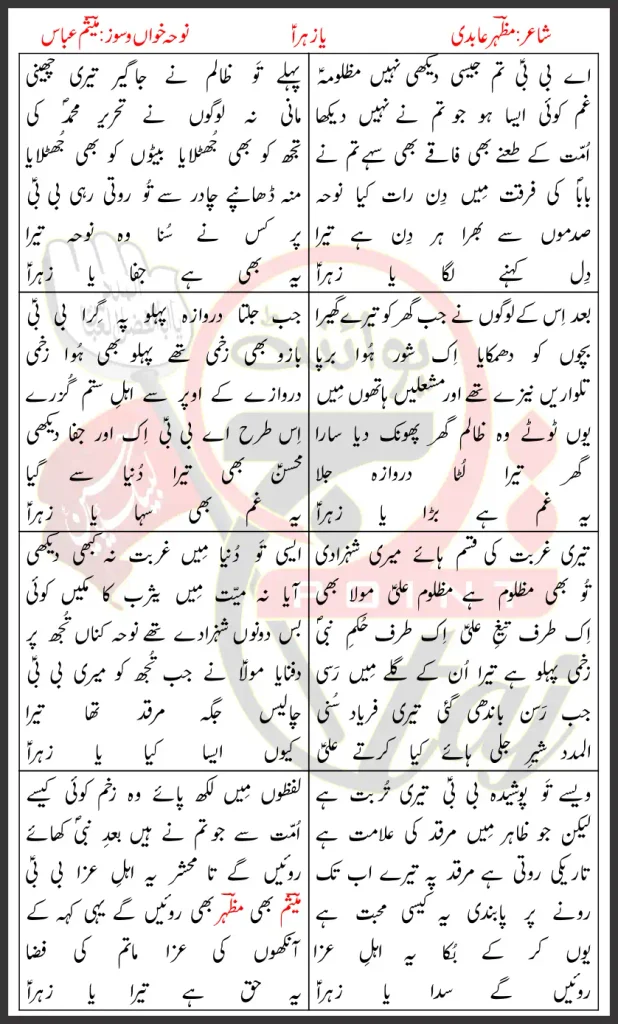 شاعر: مظہرؔ عابدی
یا زہراؑ
نوحہ خواں و سوز: میثمؔ عباس
اے بی بیؑ تم جیسی دیکھی نہیں مظلومہؑ
غم کوئی ایسا ہو جو تم نے نہیں دیکھا
اُمّت کے طعنے بھی فاقے بھی سہے تم نے
باباؐ کی فرقت میں دِن رات کیا نوحہ
صدموں سے بھرا ہر دِن ہے تیرا
دِل کہنے لگا یا زہراؑ
پہلے تَو ظالم نے جاگیر تیری چھینی
مانی نہ لوگوں نے تحریر محمدؐ کی
تجھ کو بھی جُھٹلایا بیٹوں کو بھی جُھٹلایا
منہ ڈھانپے چادر سے تُو روتی رہی بی بیؑ
پر کس نے سُنا وہ نوحہ تیرا
یہ بھی ہے جفا یا زہراؑ
بعد اِس کے لوگوں نے جب گھر کو تیرے گھیرا
بچوں کو دھمکایا اِک شور ہُوا برپا
تلواریں نیزے تھے اور مشعلیں ہاتھوں میں
یوں ٹوٹے وہ ظالم گھر پھونک دیا سارا
گھر تیرا لُٹا دروازہ جلا
یہ غم ہے بڑا یا زہراؑ
جب جلتا دروازہ پہلو پہ گِرا بی بیؑ
بازو بھی زخمی تھے پہلو بھی ہُوا زخمی
دروازے کے اوپر سے اہلِ ستم گُزرے
اِس طرح اے بی بیؑ اِک اور جفا دیکھی
محسنؑ بھی تیرا دُنیا سے گیا
یہ غم بھی سہا یا زہراؑ
تیری غربت کی قسم ہائے میری شہزادی
تُو بھی مظلوم ہے مظلوم علیؑ مولا بھی
اِک طرف تیغِ علیؑ اِک طرف حُکمِ نبیؐ
زخمی پہلو ہے تیرا اُن کے گلے میں رَسی
جب رَسن باندھی گئی تیری فریاد سُنی
المدد شیرِ جلی ہائے کیا کرتے علیؑ
ایسی تَو دُنیا میں غربت نہ کبھی دیکھی
آیا نہ میّت میں یثرب کا مکیں کوئی
بس دونوں شہزادے تھے نوحہ کناں تُجھ پر
دفنایا مولاؑ نے جب تُجھ کو میری بی بیؑ
چالیس جگہ مرقد تھا تیرا
کیوں ایسا کیا یا زہراؑ
ویسے تَو پوشیدہ بی بیؑ تیری تُربت ہے
لیکن جو ظاہر میں مرقد کی علامت ہے
تاریکی روتی ہے مرقد پہ تیرے اب تک
رونے پر پابندی یہ کیسی محبت ہے
یوں کر کے بُکا یہ اہلِ عزا
روئیں گے سدا یا زہراؑ
لفظوں میں لکھ پائے وہ زخم کوئی کیسے
اُمّت سے جو تم نے ہیں بعدِ نبیؐ کھائے
روئیں گے تا محشر یہ اہلِ عزا بی بیؑ
میثمؔ بھی مظہرؔ بھی روئیں گے یہی کہہ کے
آنکھوں کی عزا ماتم کی فضا
یہ حق ہے تیرا یا زہراؑ
POINT
taj